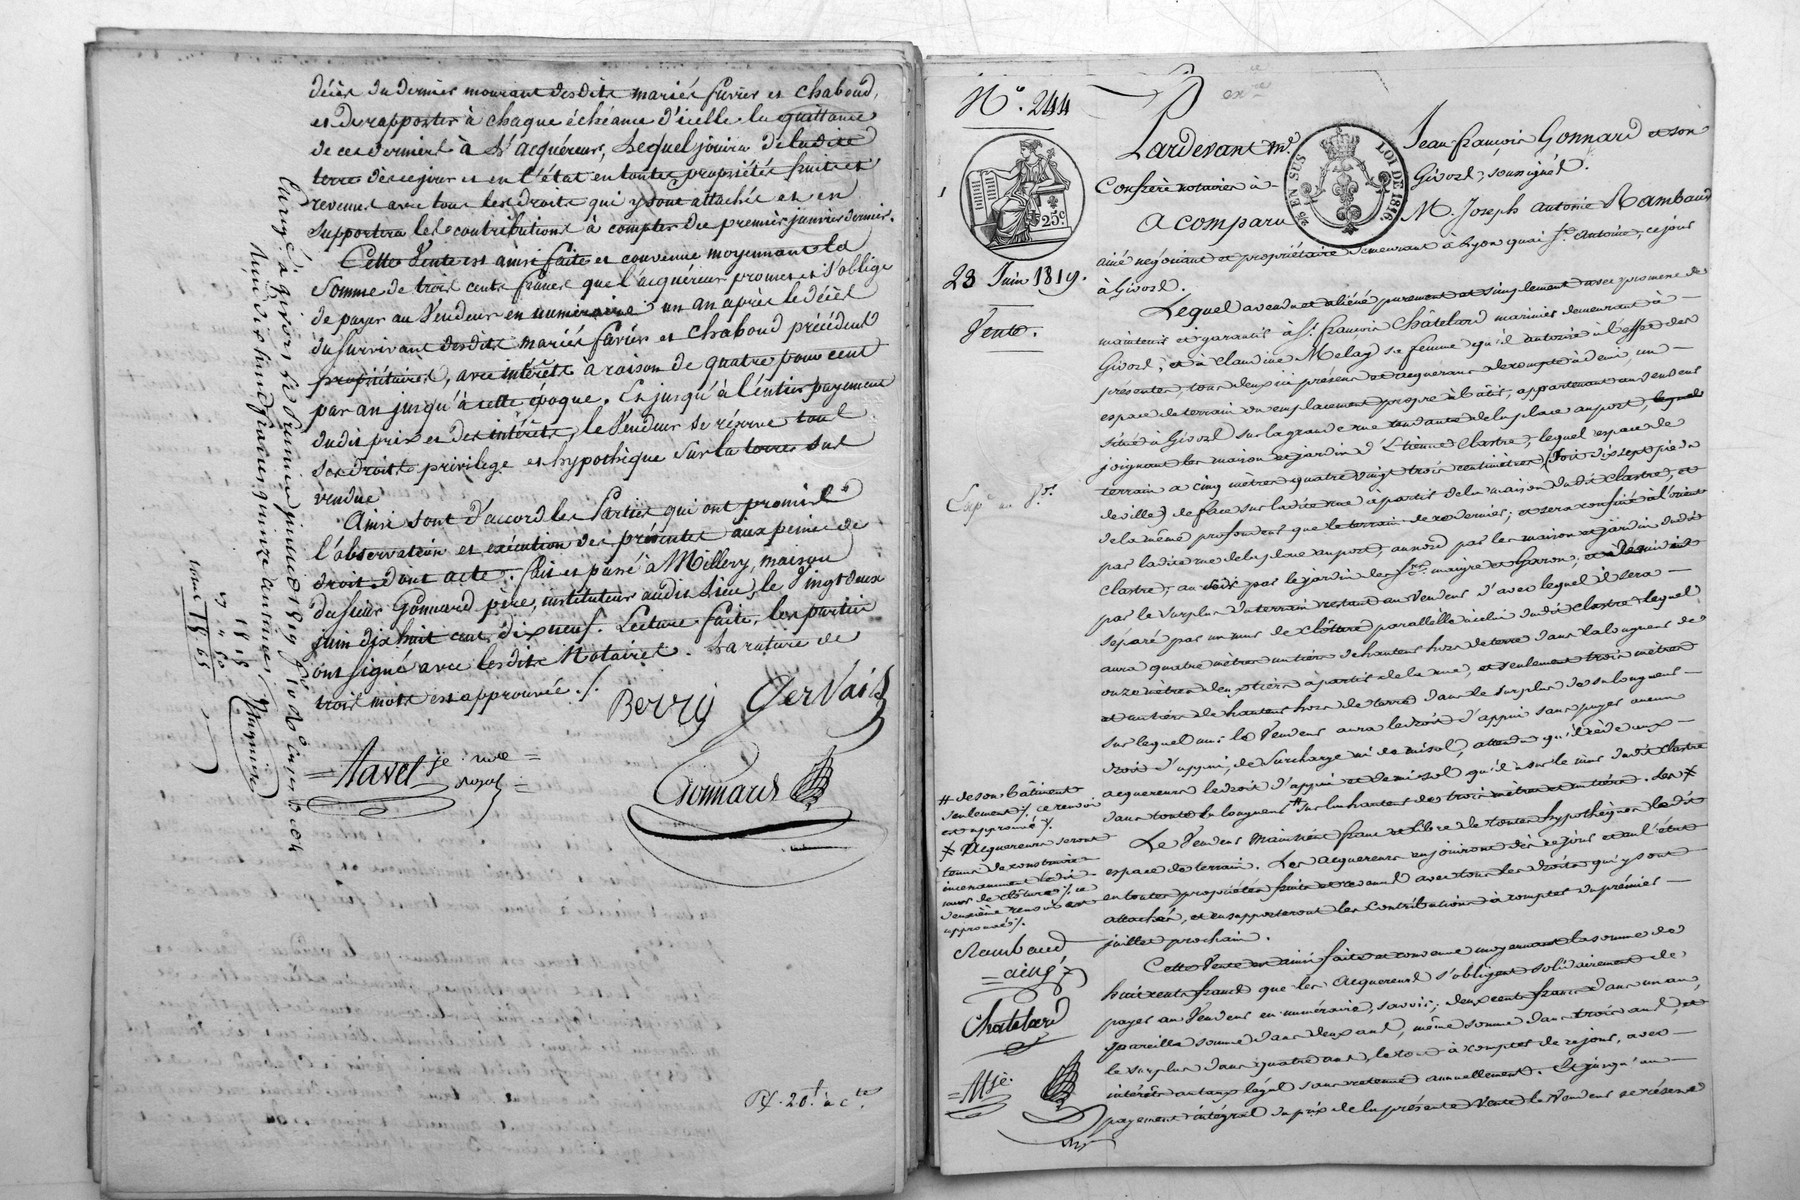 décès du dernier mourant desdits mariés favrier et chaboud,
et de rapporter à chaque échéance d'icelle la quittance
de ces derniers à l'acquéreur, Lequel jouira de ladite
terre dès ce jour et en l'état en toutes propriétés fruits et
revenus avec tous les droits qui y sont attachés et en
supportera les contributions à compter du premier janvier dernier.
Cette Vente est ainsi faite et convenue moyennant la
somme de trois cents francs que l'acquéreur promet et s'oblige
de payer au Vendeur en numéraire un an après le décès
du survivant desdits mariés favrier et chaboud précédent
propriétaires, avec intérêts à raison de quatre pour cent
par an jusqu'à cette époque. Et jusqu'à l'entier payement
dudit prix et des intérêts, le Vendeur se réserve tous
ses droits privilege et hypothèque sur la terre sus
vendue
Ainsi sont d'accord les Parties qui ont promis
l'observation et exécution des présentes aux peines de
droit. dont acte. fait et passé à Millery, maison
du sieur Gonnard père, instituteur audit Lieu, le Vingt deux
juin dix huit cent dix neuf. Lecture faite, les parties
ont signé avec lesdits Notaires. La rature de
trois mots est approuvée ./.
Berry Gervais
Tavel je. nre
royal
Gonnard
Enregé à givors le premier juillet 1819
reçu dix huit francs quinze centimes
18 15
total 19 65
N°. 244
Pardevant Me. Jean françois Gonnard et son
Confrère notaires à Givors, soussignés.
A comparu M. Joseph Antoine Rambaud
ainé négociant et propriétaire demeurant à Lyon quai St. Antoine, ce jour
à Givors.
25 EN SUS
LOI DE 1816
25c
23 Juin 1819.
Vente.
Lequel a vendu et aliéné purement et simplement avec promesse de
maintenir et garantir à Sr. françois Châtelard marinier demeurant à
Givors, et à Claudine Melay sa femme qu'il autorise à l'effet des
présentes, tous deux ici présens et acquerans de compte à demi, un
espace de terrain ou emplacement propre à bâtir, appartenant au Vendeur
situé à Givors sur la grande rue tendante de la place au port, lequel
joignant les maison et jardin d'Etienne Clastre, lequel espace de
terrain a cinq mètres quatre vingt trois centimètres (soit dix sept pieds
de ville) de face sur ladite rue à partir de la maison dudit Clastre, et
de la même profondeur que le terrain de ce dernier; et sera confiné à l'orient
par ladite rue de la place au port, au nord par les maison et jardin dudit
Clastre, au soir par le jardin de Srs. maigre et Garon, et à
par le surplus du terrain restant au Vendeur d'avec lequel il sera
séparé par un mur de clôture parallèle à celui dudit Clastre lequel
aura quatre mètres un tiers de hauteur hors de terre dans la longueur de
onze mètres deux tiers à partir de la rue, et seulement trois mètres
et un tiers de hauteur hors de terre dans le surplus de sa longueur
sur lequel mur le Vendeur aura le droit d'appui sans payer aucun
droit d'appui, de surcharge ni de misol, attendu qu'il cède aux
acquereurs le droit d'appui et de misol qu'il a sur le mur dudit Clastre
dans toute la longueur # sur la hauteur de trois mètres et un tiers. Les ⚹
Le Vendeur Maintient franc et libre de toutes hypothèques ledit
espace de terrain. Les acquereurs en jouiront dès ce jour et en l'état
en toutes propriétés fruits et revenus avec tous les droits qui y sont
attachés, et en supporteront les contributions à compter du premier
juillet prochain.
Cette Vente est ainsi faite et convenue moyennant la somme de
huit cents francs que les Acquereurs s'obligent solidairement de
payer au Vendeur en numéraire, savoir; deux cents francs dans un an,
pareille somme dans deux ans, même somme dans trois ans, et
le surplus dans quatre ans, le tout à compter de ce jour, avec
intérêts au taux légal sans retenue annuellement. Et jusqu'au
payement intégral du prix de la présente Vente le Vendeur se réserve
# de son bâtiment
seulement ./. ce renvoi
est approuvé ./.
⚹ Acquereurs seront
tenus de construire
incessamment ledit
mur de clôture ./. ce
deuxième renvoi est
approuvé ./.
Rambaud
ainé
Chatelard